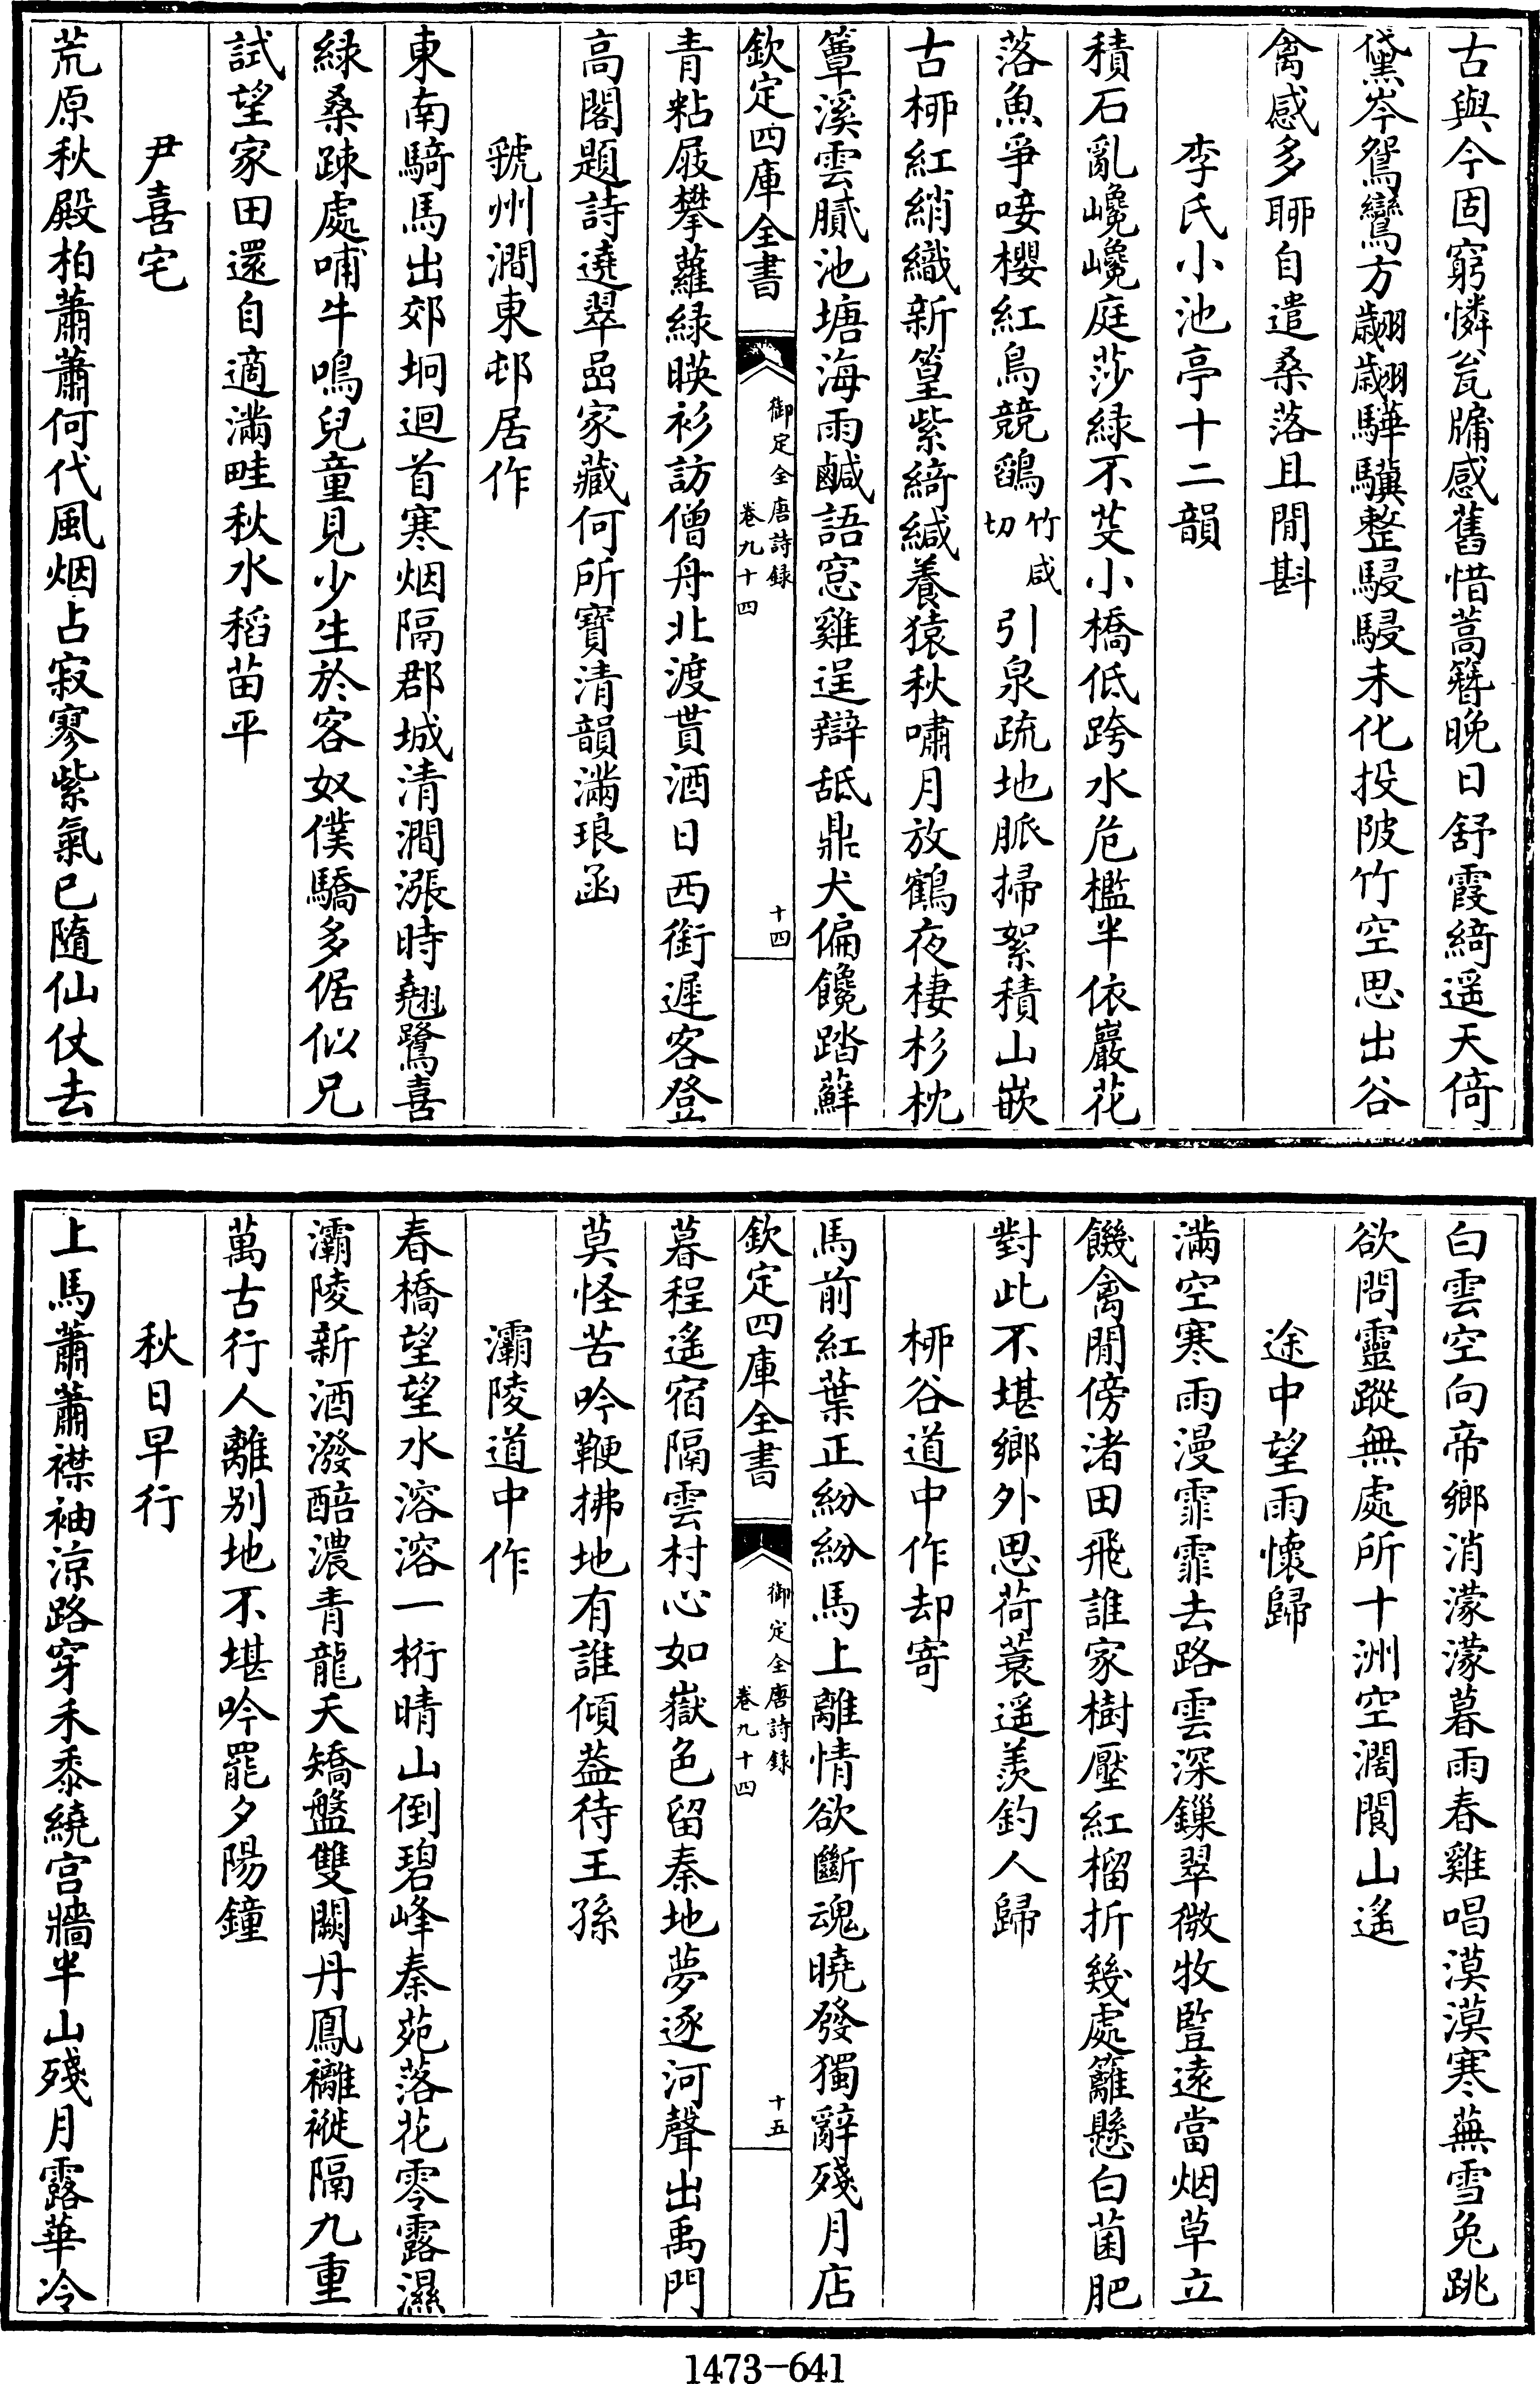 古與今固窮憐瓮牖感舊惜蒿簪晚日舒霞綺遥天倚
黛岑鴛鸞方翽翽驊驥整駸駸未化投陂竹空思出谷
禽感多聊自遣桑落且閒斟
李氏小池亭十二韻
積石亂巉巉庭莎緑不芟小橋低跨水危檻半依巖花
落魚爭唼櫻紅鳥競鵮竹咸切引泉疏地脈掃絮積山嵌
古栁紅綃織新篁紫綺緘養猿秋嘯月放鶴夜棲杉枕
簟溪雲膩池塘海雨鹹語窓雞逞辯舐鼎犬偏饞踏蘚
欽定四庫全書
御定全唐詩録
卷九十四
十四
青粘屐攀蘿緑暎衫訪僧舟北渡貰酒日西銜遲客登
高閣題詩遶翠嵒家藏何所寶清韻滿琅函
虢州澗東邨居作
東南騎馬出郊坰迴首寒烟隔郡城清澗漲時翹鷺喜
緑桑踈處哺牛鳴兒童見少生於客奴僕驕多倨似兄
試望家田還自適滿畦秋水稻苗平
尹喜宅
荒原秋殿柏蕭蕭何代風烟占寂寥紫氣已隨仙仗去
白雲空向帝鄉消濛濛暮雨春雞唱漠漠寒蕪雪兔跳
欲問靈蹤無處所十洲空濶閬山遥
途中望雨懷歸
滿空寒雨漫霏霏去路雲深鏁翠微牧豎遠當烟草立
饑禽閒傍渚田飛誰家樹壓紅榴折幾處籬懸白菌肥
對此不堪鄉外思荷蓑遥羨釣人歸
栁谷道中作却寄
馬前紅葉正紛紛馬上離情欲斷魂曉發獨辭殘月店
欽定四庫全書
御定全唐詩録
卷九十四
十五
暮程遙宿隔雲村心如嶽色留秦地夢逐河聲出禹門
莫怪苦吟鞭拂地有誰傾葢待王孫
灞陵道中作
春橋望望水溶溶一桁晴山倒碧峰秦苑落花零露濕
灞陵新酒潑醅濃青龍夭矯盤雙闕丹鳳䙰褷隔九重
萬古行人離别地不堪吟罷夕陽鐘
秋日早行
上馬蕭蕭襟袖涼路穿禾黍繞宫牆半山殘月露華冷
1473-641